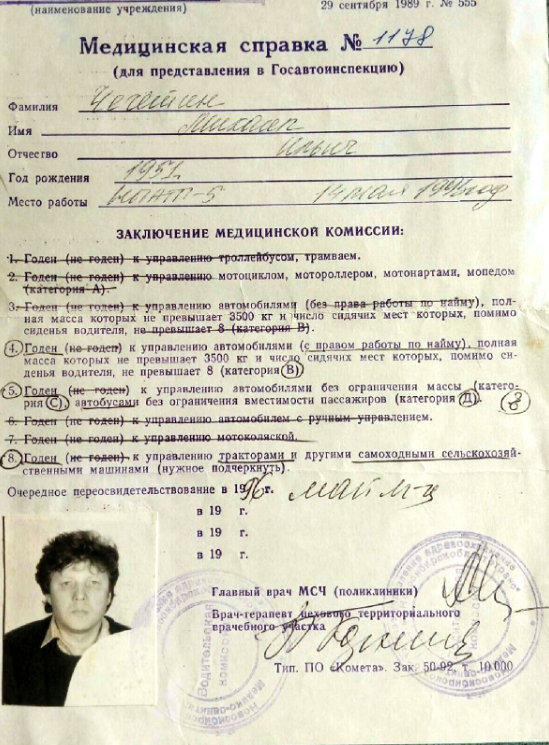 (наименование учреждения)
29 сентября 1989 г. № 555
Медицинская справка № 1178
(для представления в Госавтоинспекцию)
Фамилия
Имя Михаил
Отчество Ильич
Год рождения 1951
Место работы
ЗАКЛЮЧЕНИЕ МЕДИЦИНСКОЙ КОМИССИИ:
1. Годен (не годен) к управлению троллейбусом, трамваем.
2. Годен (не годен) к управлению мотоциклом, мотороллером, мотонартами, мопедом
(категория А).
3. Годен (не годен) к управлению автомобилями (без права работы по найму), пол-
ная масса которых не превышает 3500 кг и число сидячих мест которых, помимо
сиденья водителя, не превышает 8 (категория В).
4. Годен (не годен) к управлению автомобилями (с правом работы по найму), полная
масса которых не превышает 3500 кг и число сидячих мест которых, помимо си-
денья водителя, не превышает 8 (категория В)
5. Годен (не годен) к управлению автомобилями без ограничения массы (катего-
рия С), автобусами без ограничения вместимости пассажиров (категория Д). 8
6. Годен (не годен) к управлению автомобилем с ручным управлением.
7. Годен (не годен) к управлению мотоколяской.
8. Годен (не годен) к управлению тракторами и другими самоходными сельскохозяй-
ственными машинами (нужное подчеркнуть).
Очередное переосвидетельствование в 1996 г. май м-ц
в 19 г.
в 19 г.
в 19 г.
Главный врач МСЧ (поликлиники)
Врач-терапевт цехового территориального
врачебного участка
Тип. ПО «Комета». Зак. 50-92, т. 10 000
Водительская
комиссия